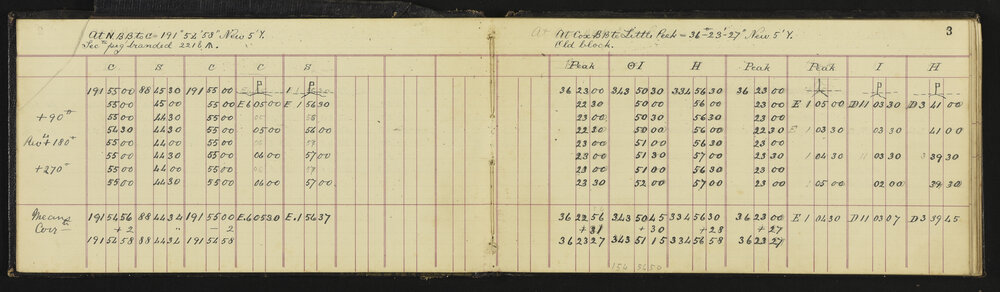 At N. B B to C = 191° 54' 58" New 5" Y.
Sec peg branded 2218 M.
C S C C S
191 55 00 88 45 30 191 55 00
55 00 45 00 55 00 E 6 05 00 E 1 56 30
+90° 55 00 44 30 55 00
54 30 44 30 55 00 05 00 56 00
+180° 55 00 44 00 55 00
55 00 44 30 55 00 06 00 57 00
+270° 55 00 44 00 55 00
55 00 44 30 55 00 06 00 57 00
Mean 191 54 56 88 44 34 191 55 00 E. 6 05 30 E. 1 56 37
Corr +2 " -2
191 54 58 88 44 34 191 54 58
3
At Cox B B to Little Peak = 36° 23' 27" New 5" Y.
Old block.
Peak ΘI H Peak Peak I H
36 23 00 343 50 30 334 56 30 36 23 00
22 30 50 00 56 00 23 00 E 1 05 00 D 11 03 30 D 3 41 00
23 00 50 30 56 30 23 00
22 30 50 00 56 00 22 30 E 1 03 30 03 30 41 00
23 00 51 00 56 30 23 00
23 00 51 30 57 00 23 00 1 04 30 11 03 30 3 39 30
23 00 51 00 56 30 23 00
23 30 52 00 57 00 23 00 1 05 00 02 00 39 30
36 22 56 343 50 45 334 56 30 36 23 00 E 1 04 30 D 11 03 07 D 3 39 45
+31 +30 +28 +27
36 23 27 343 51 15 334 56 58 36 23 27